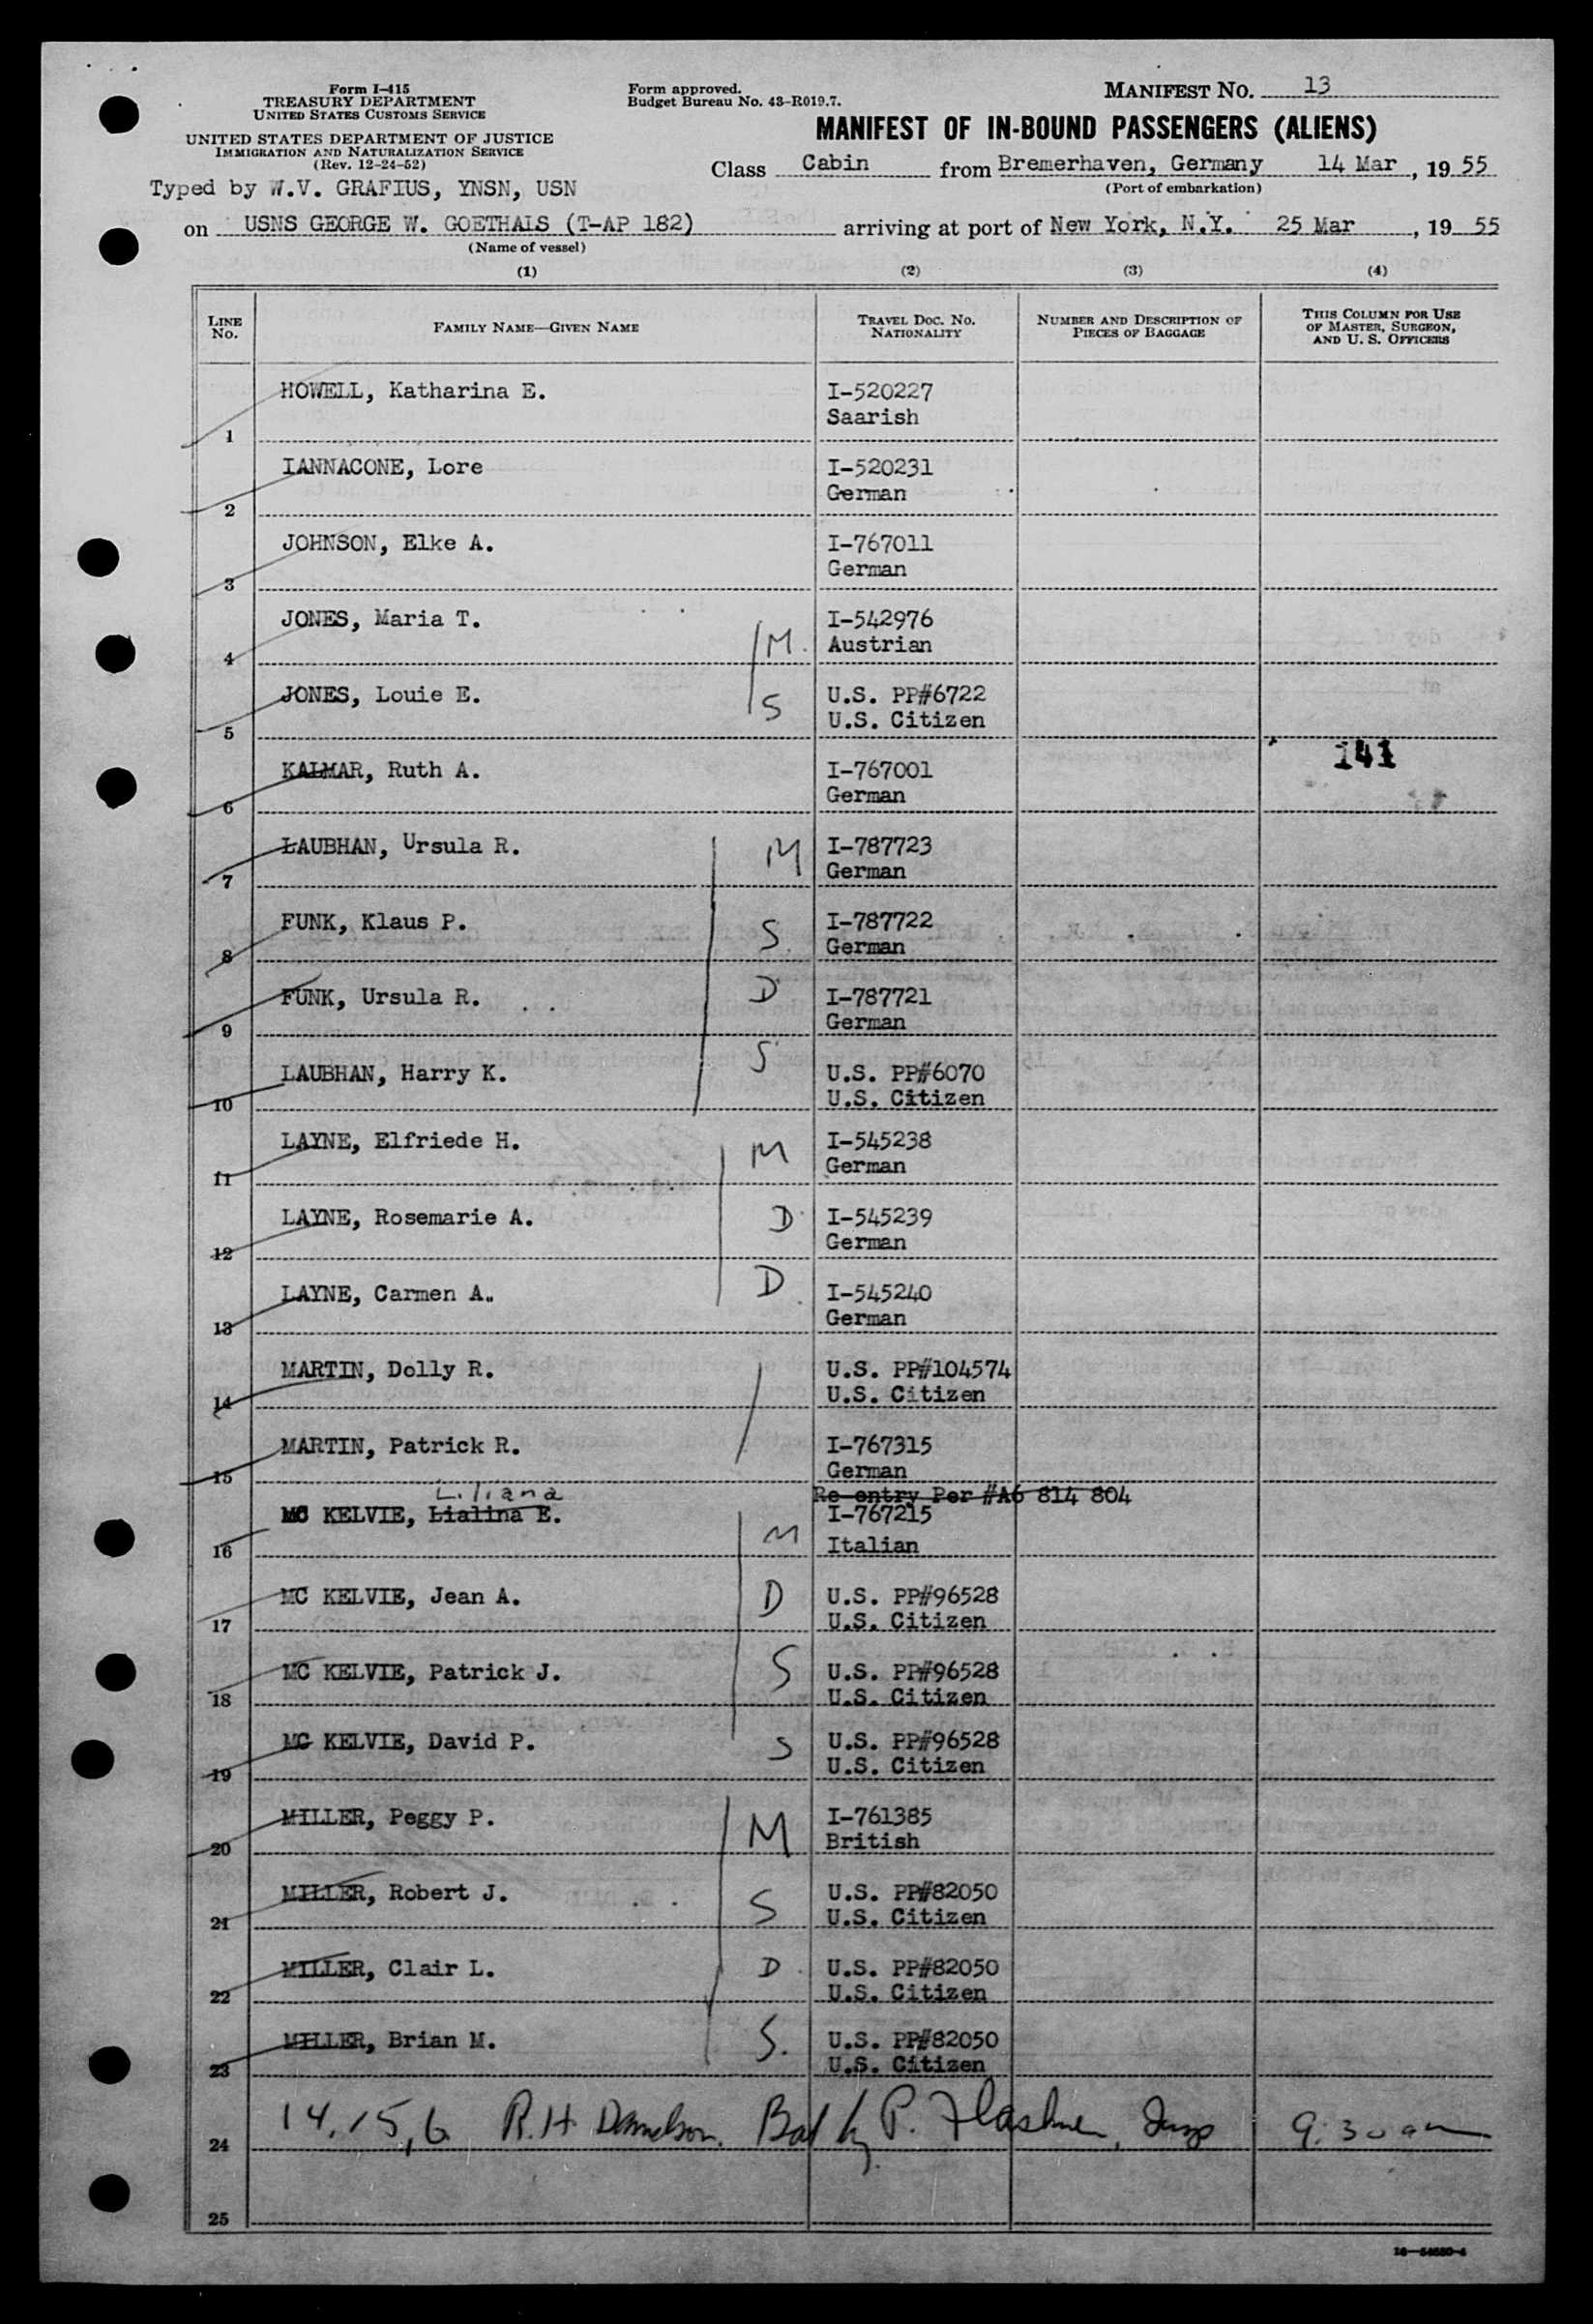 Form I-415
TREASURY DEPARTMENT
UNITED STATES CUSTOMS SERVICE
UNITED STATES DEPARTMENT OF JUSTICE
IMMIGRATION AND NATURALIZATION SERVICE
(Rev. 12-24-52)
Form approved.
Budget Bureau No. 43-R019.7.
MANIFEST NO. 13
MANIFEST OF IN-BOUND PASSENGERS (ALIENS)
Class Cabin from Bremerhaven, Germany 14 Mar, 19 55
(Port of embarkation)
Typed by W.V. GRAFIUS, YNSN, USN
on USNS GEORGE W. GOETHALS (T-AP 182) arriving at port of New York, N.Y. 25 Mar, 19 55
(Name of vessel)
(1) (2) (3) (4)
LINE No. FAMILY NAME—GIVEN NAME TRAVEL DOC. NO. NATIONALITY NUMBER AND DESCRIPTION OF PIECES OF BAGGAGE THIS COLUMN FOR USE OF MASTER, SURGEON, AND U. S. OFFICERS
HOWELL, Katharina E. I-520227
1 Saarish
IANNACONE, Lore I-520231
2 German
JOHNSON, Elke A. I-767011
3 German
JONES, Maria T. I-542976
4 M. Austrian
JONES, Louie E. S U.S. PP#6722
5 U.S. Citizen
141
KALMAR, Ruth A. I-767001
6 German
LAUBHAN, Ursula R. M I-787723
7 German
FUNK, Klaus P. S I-787722
8 German
FUNK, Ursula R. D I-787721
9 German
LAUBHAN, Harry K. S U.S. PP#6070
10 U.S. Citizen
LAYNE, Elfriede H. M I-545238
11 German
LAYNE, Rosemarie A. D I-545239
12 German
LAYNE, Carmen A. D I-545240
13 German
MARTIN, Dolly R. U.S. PP#104574
14 U.S. Citizen
MARTIN, Patrick R. I-767315
15 German
Liliana Re-entry Per #A6 814 804
MC KELVIE, Lialina E. I-767215
16 M Italian
MC KELVIE, Jean A. D U.S. PP#96528
17 U.S. Citizen
MC KELVIE, Patrick J. S U.S. PP#96528
18 U.S. Citizen
MC KELVIE, David P. S U.S. PP#96528
19 U.S. Citizen
MILLER, Peggy P. M I-761385
20 British
MILLER, Robert J. S U.S. PP#82050
21 U.S. Citizen
MILLER, Clair L. D U.S. PP#82050
22 U.S. Citizen
MILLER, Brian M. S. U.S. PP#82050
23 U.S. Citizen
14, 15, 6 R.H. Danielson. Bal by P. Insp 9:30 am
24
25